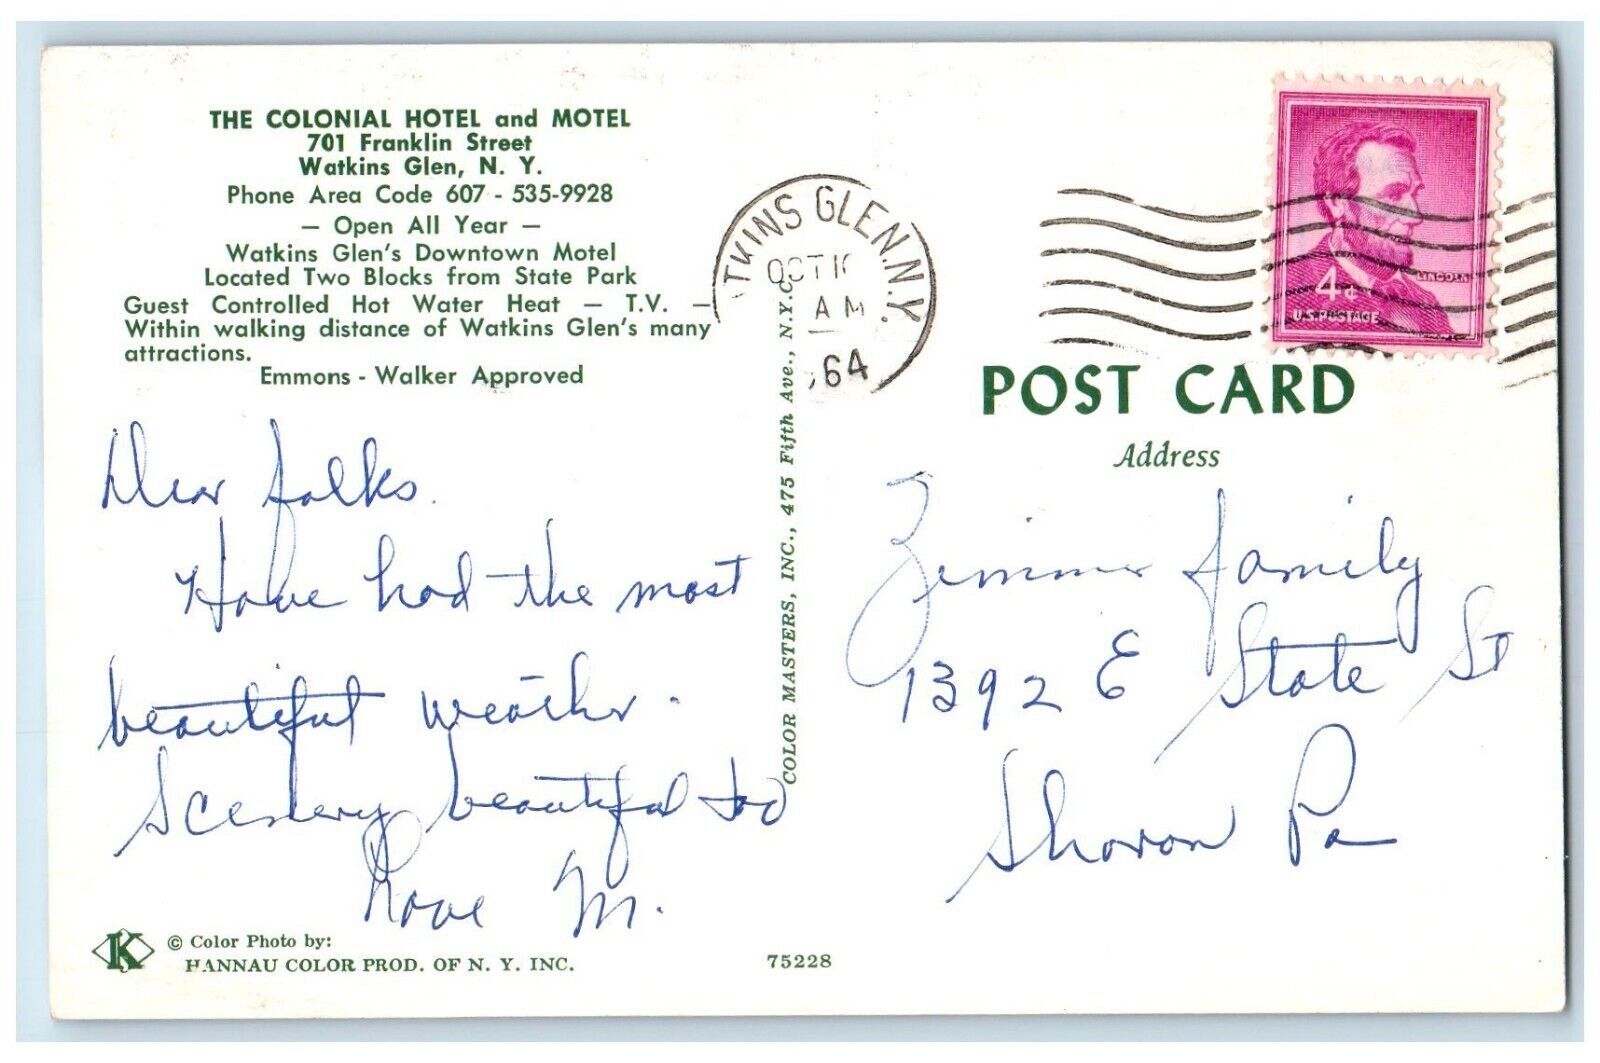 THE COLONIAL HOTEL and MOTEL
701 Franklin Street
Watkins Glen, N. Y.
Phone Area Code 607 - 535-9928
— Open All Year —
Watkins Glen's Downtown Motel
Located Two Blocks from State Park
Guest Controlled Hot Water Heat — T.V. —
Within walking distance of Watkins Glen's many
attractions.
Emmons - Walker Approved
Dear folks.
Have had the most
beautiful weather.
Scenery beautiful too
Love M.
© Color Photo by:
HANNAU COLOR PROD. OF N. Y. INC.
K
75228
COLOR MASTERS, INC., 475 Fifth Ave., N.Y.C.
TKINS GLEN.N.Y.
OCT
AM
64
LINCOLN
4¢
U.S. POSTAGE
POST CARD
Address
Zimmer family
1392 E State St
Sharon Pa